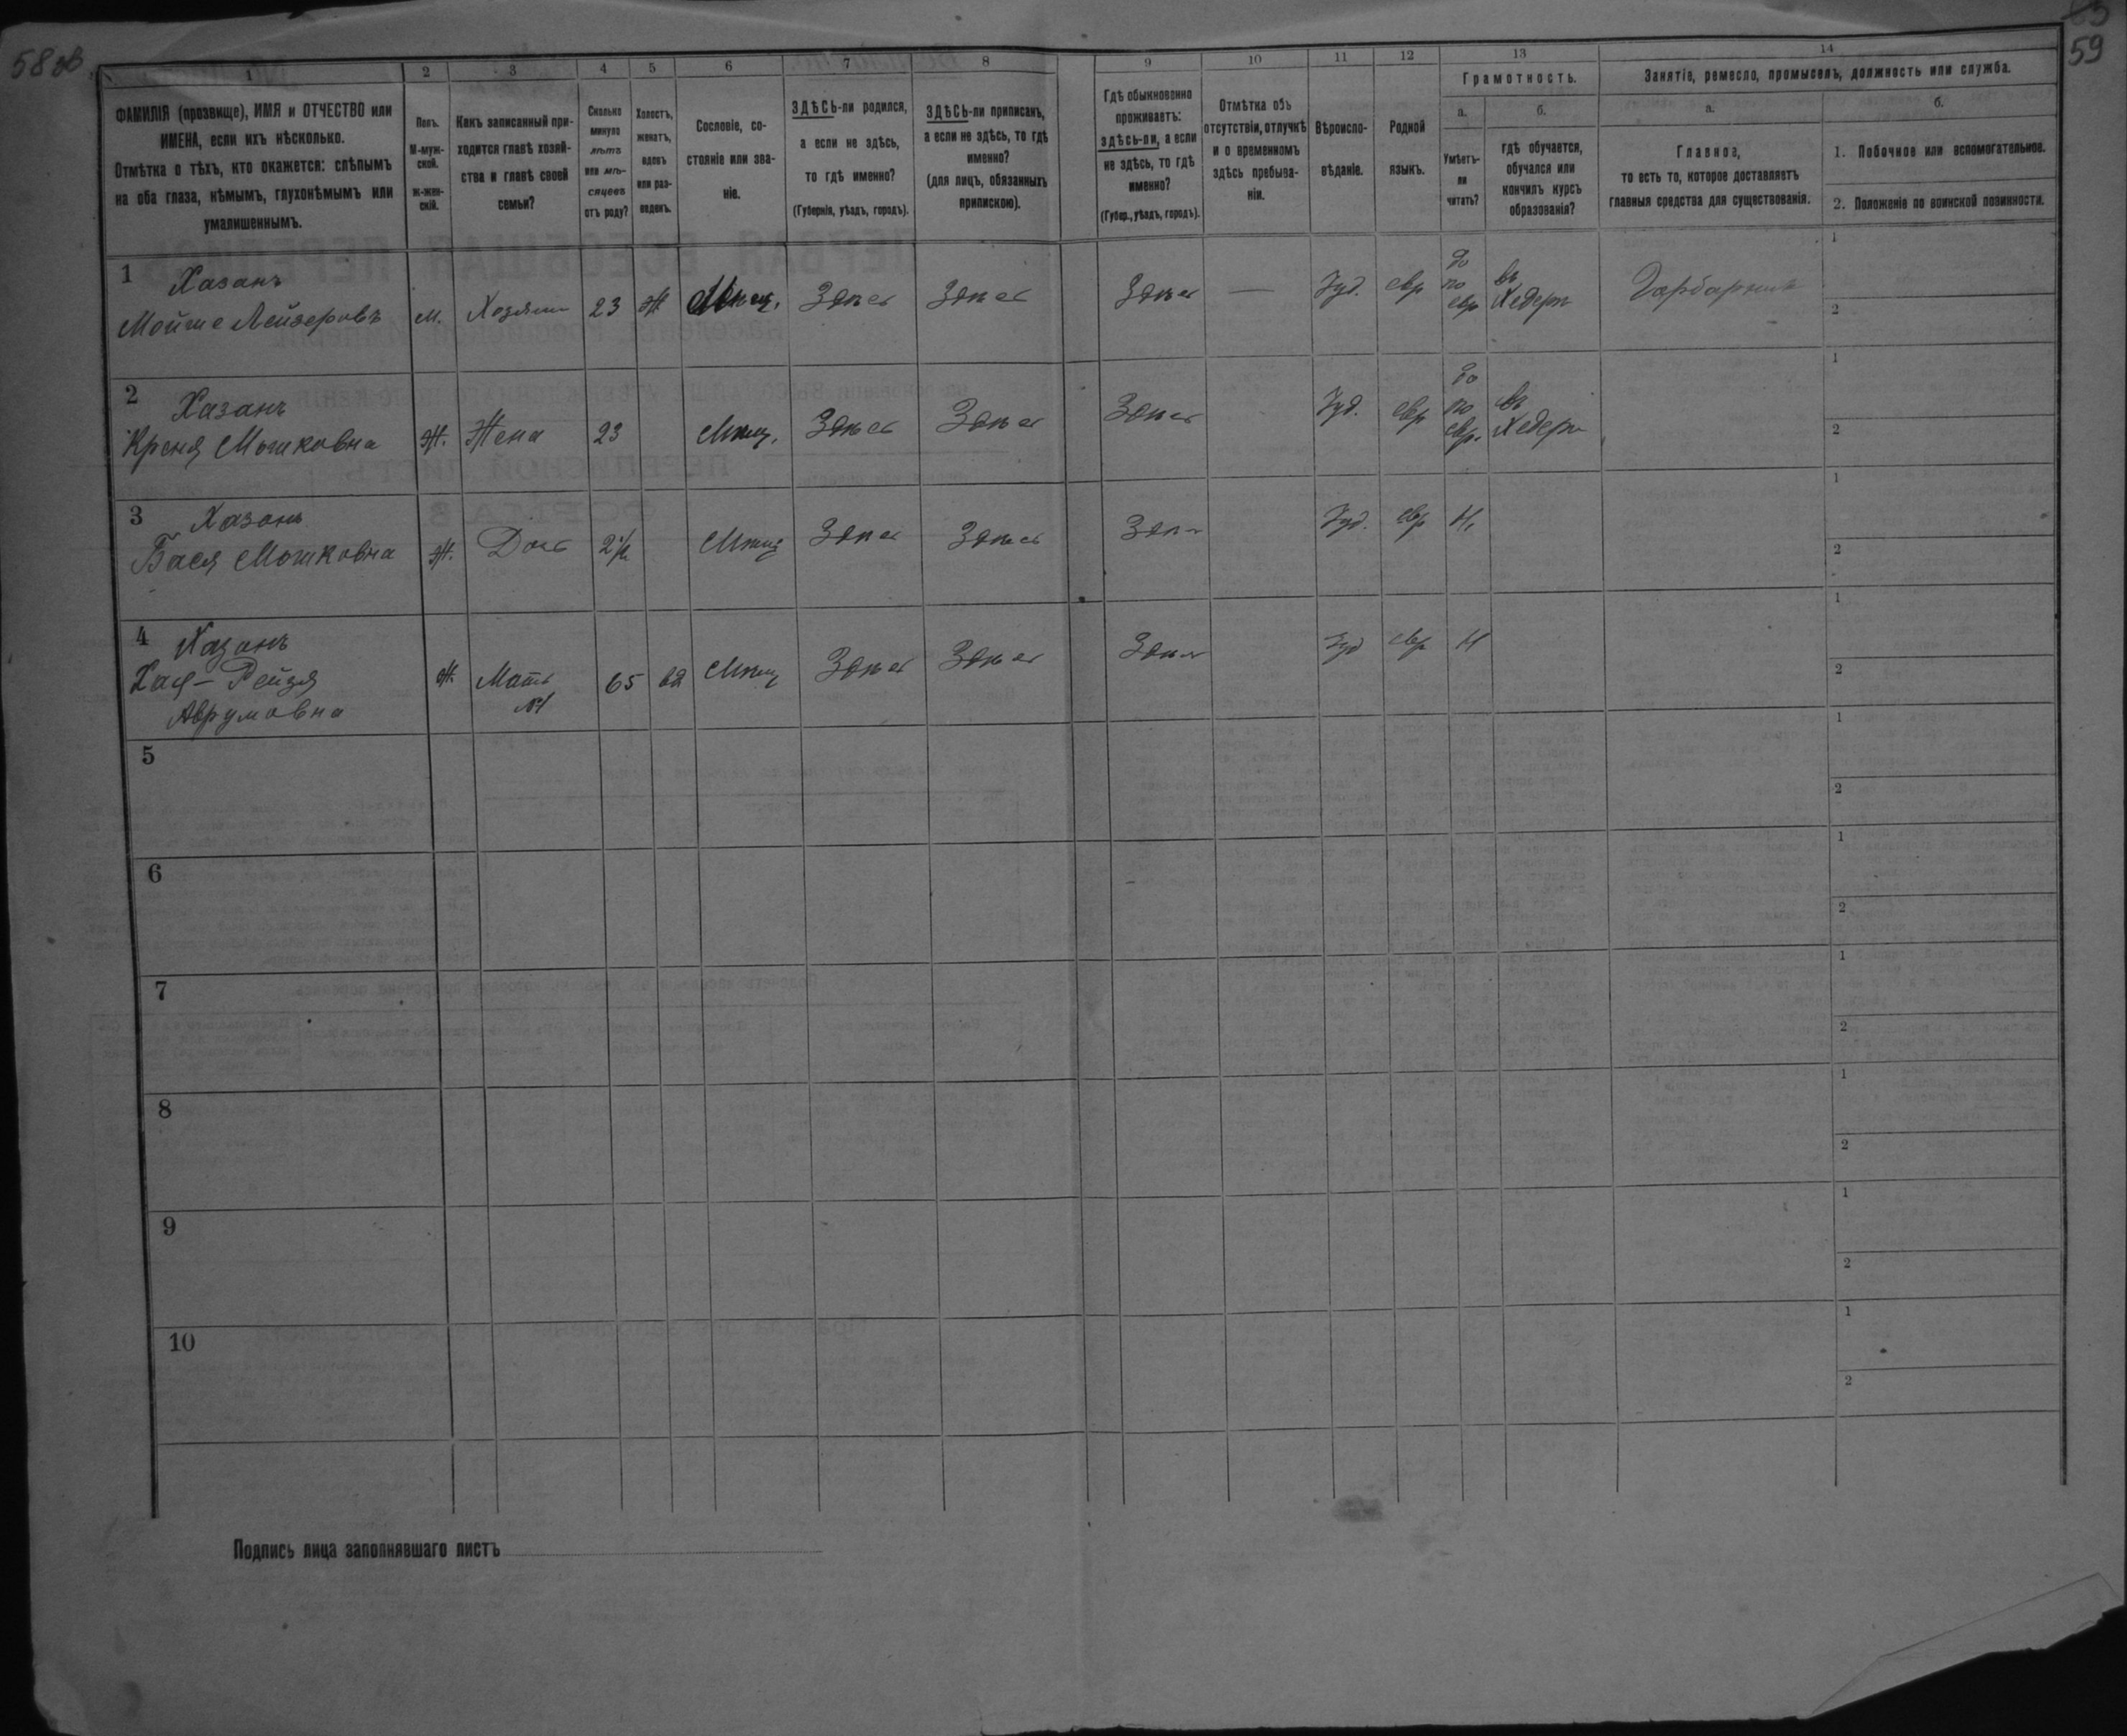 58 об
59
1
2
3
4
5
6
7
8
9
10
11
12
13
14
ФАМИЛІЯ (прозвище), ИМЯ и ОТЧЕСТВО или
ИМЕНА, если ихъ нѣсколько.
Отмѣтка о тѣхъ, кто окажется: слѣпымъ
на оба глаза, нѣмымъ, глухонѣмымъ или
умалишеннымъ.
Полъ.
М-муж-
ской.
ж-жен-
скій.
Какъ записанный при-
ходится главѣ хозяй-
ства и главѣ своей
семьи?
Сколько
минуло
лѣтъ
или мѣ-
сяцевъ
отъ роду?
Холостъ,
женатъ,
вдовъ
или раз-
веденъ.
Сословіе, со-
стояніе или зва-
ніе.
ЗДѢСЬ-ли родился,
а если не здѣсь,
то гдѣ именно?
(Губернія, уѣздъ, городъ).
ЗДѢСЬ-ли приписанъ,
а если не здѣсь, то гдѣ
именно?
(для лицъ, обязанныхъ
припискою).
Гдѣ обыкновенно
проживаетъ:
здѣсь-ли, а если
не здѣсь, то гдѣ
именно?
(Губер., уѣздъ, городъ).
Отмѣтка объ
отсутствіи, отлучкѣ
и о временномъ
здѣсь пребыва-
ніи.
Вѣроиспо-
вѣданіе.
Родной
языкъ.
Грамотность.
а.
Умѣетъ-
ли
читать?
б.
гдѣ обучается,
обучался или
кончилъ курсъ
образованія?
Занятіе, ремесло, промыселъ, должность или служба.
а.
Главное,
то есть то, которое доставляетъ
главныя средства для существованія.
б.
1. Побочное или вспомогательное.
2. Положеніе по воинской повинности.
1
Хазанъ
Мойше Лейзеровъ
м.
Хозяинъ
23
Ж
Мѣщ.
Здѣсь
Здѣсь
Здѣсь
—
Іуд.
евр
да
по
евр
въ
Хедерѣ
Гарбарникъ
1
2
2
Хазанъ
Креня Мошковна
Ж.
Жена
23
Мѣщ.
Здѣсь
Здѣсь
Здѣсь
Іуд.
евр
да
по
евр.
въ
Хедерѣ
1
2
3
Хазанъ
Бася Мошковна
Ж.
Дочь
2½
Мѣщ
Здѣсь
Здѣсь
Здѣсь
Іуд.
евр
Н.
1
2
4
Хазанъ
Хая-Рейзя
Аврумовна
Ж.
Мать
№1
65
вд
Мѣщ
Здѣсь
Здѣсь
Здѣсь
Іуд
евр
Н
1
2
5
1
2
6
1
2
7
1
2
8
1
2
9
1
2
10
1
2
Подпись лица заполнявшаго листъ